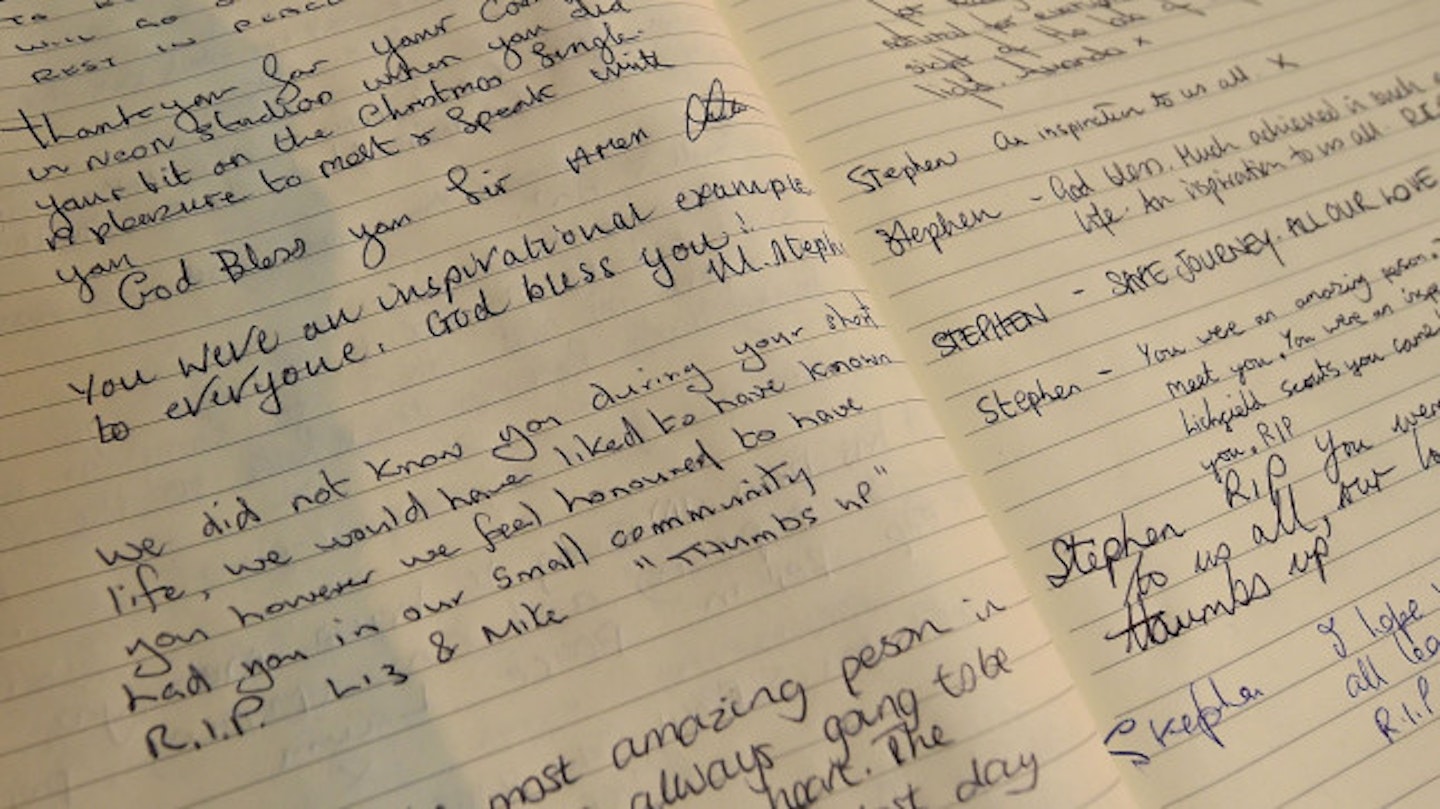 REST IN PEACE
Thank you for your
in Neon Studios when you did
your bit on the Christmas Single.
A pleazure to meet & Speak with
you
God Bless you Sir
You were an inspirational example
to everyone. God bless you!
M. Steph
We did not know you during your short
life, we would have liked to have known
you however we feel honoured to have
had you in our small community
R.I.P. Liz & Mike "Thumbs up"
most amazing peson in
always going to be
heart. The
day
sight of the
light. Amanda x
Stephen An inspiration to us all. X
Stephen - God bless. Much achieved in such
life. An inspiration to us all.
STEPHEN - SAFE JOURNEY. ALL OUR LOVE
Stephen - You were an amazing person.
meet you. You were an
Lichfield scouts you came
you. RIP
Stephen RIP You were
to us all, our
thumbs up
Stephen I hope
all
R.I.P